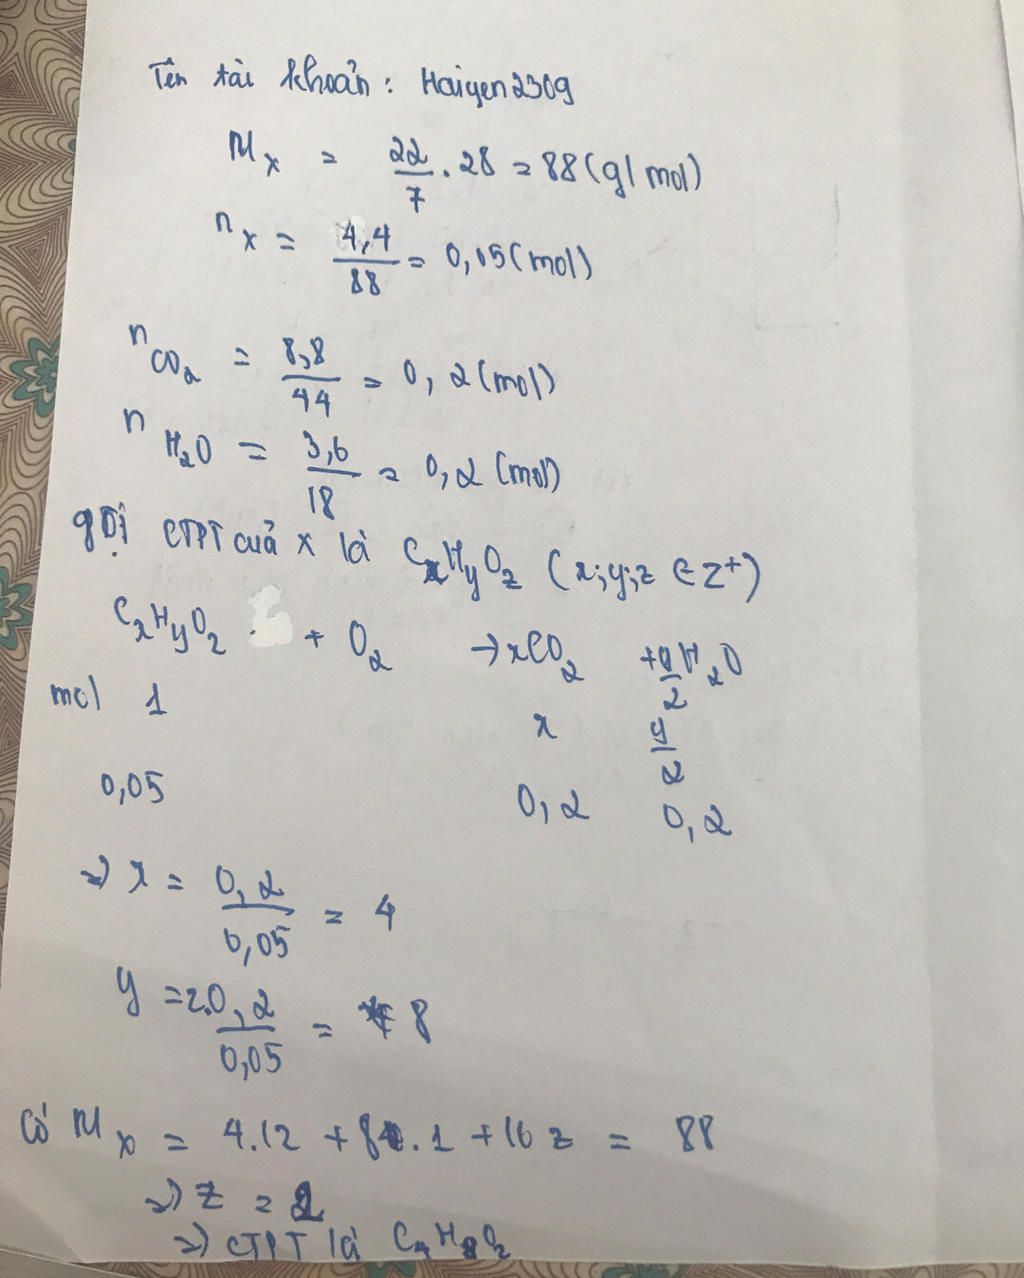 Tên tài khoản: Haiyen2309
Mx = 22/7 . 28 = 88 (g/mol)
nx = 4,4/88 = 0,05 (mol)
nCO2 = 8,8/44 = 0,2 (mol)
nH2O = 3,6/18 = 0,2 (mol)
gọi CTPT cuả x là CxHyOz (x;y;z ∈ Z+)
CxHyOz + O2 → xCO2 + y/2 H2O
mol 1 x y/2
0,05 0,2 0,2
=> x = 0,2/0,05 = 4
y = 2.0,2/0,05 = 8
Có Mx = 4.12 + 8.1 + 16z = 88
=> z = 2
=> CTPT là C4H8O2